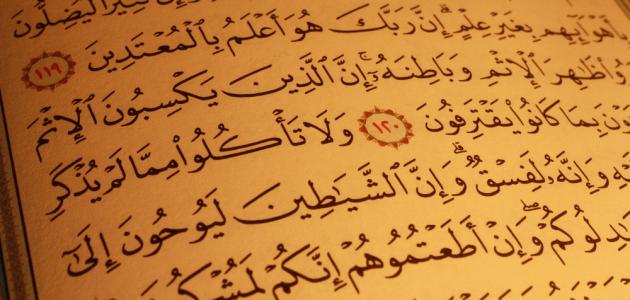 كَثِيرًا لَّيُضِلُّونَ
بِأَهْوَآئِهِم بِغَيْرِ عِلْمٍ ۗ إِنَّ رَبَّكَ هُوَ أَعْلَمُ بِٱلْمُعْتَدِينَ ١١٩
وَذَرُوا۟ ظَٰهِرَ ٱلْإِثْمِ وَبَاطِنَهُۥٓ ۚ إِنَّ ٱلَّذِينَ يَكْسِبُونَ ٱلْإِثْمَ
بِمَا كَانُوا۟ يَقْتَرِفُونَ ١٢٠ وَلَا تَأْكُلُوا۟ مِمَّا لَمْ يُذْكَرِ
وَإِنَّهُۥ لَفِسْقٌ ۗ وَإِنَّ ٱلشَّيَٰطِينَ لَيُوحُونَ إِلَىٰٓ
وَإِنْ أَطَعْتُمُوهُمْ إِنَّكُمْ لَمُشْرِكُونَ